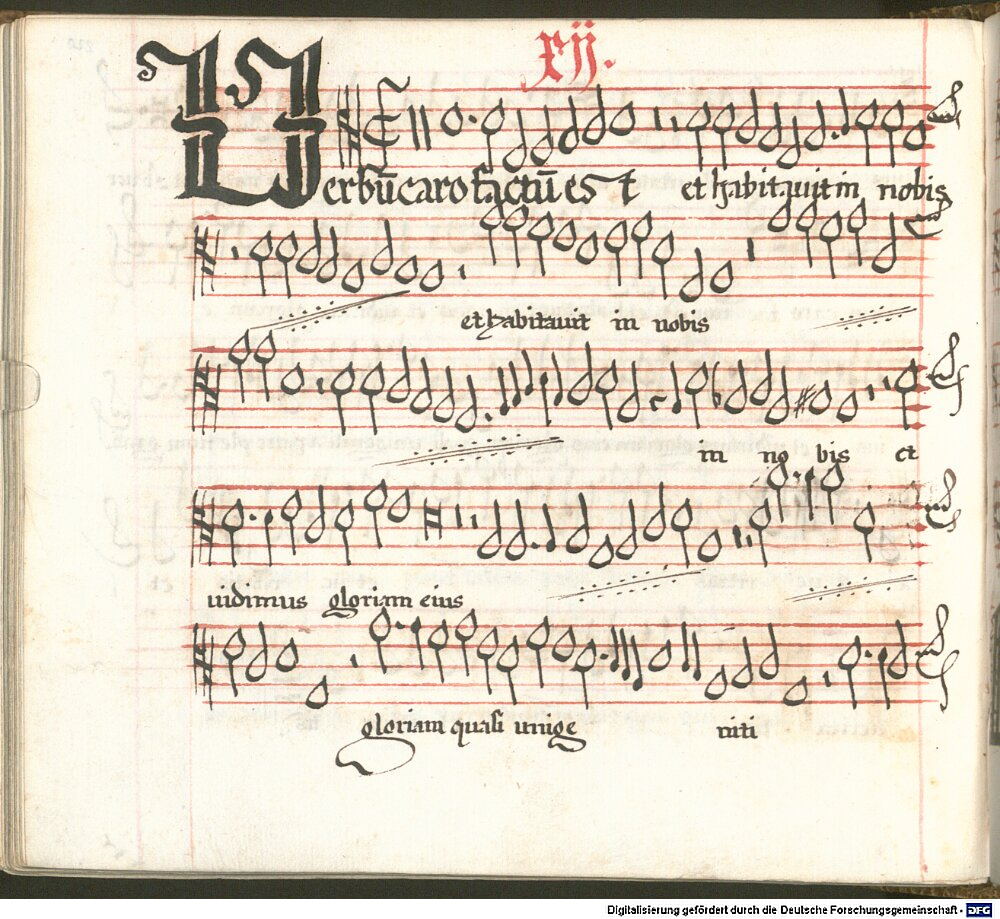 xij.
Verbū caro factū est et habitauit in nobis
et habitauit in nobis
in no bis et
uidimus gloriam eius
gloriam quasi unige niti
Digitalisierung gefördert durch die Deutsche Forschungsgemeinschaft - DFG